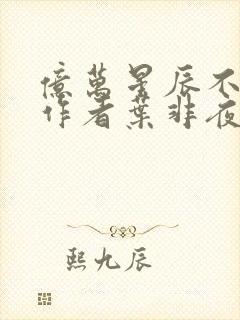 億萬星辰不
作者葉非夜
熙九辰